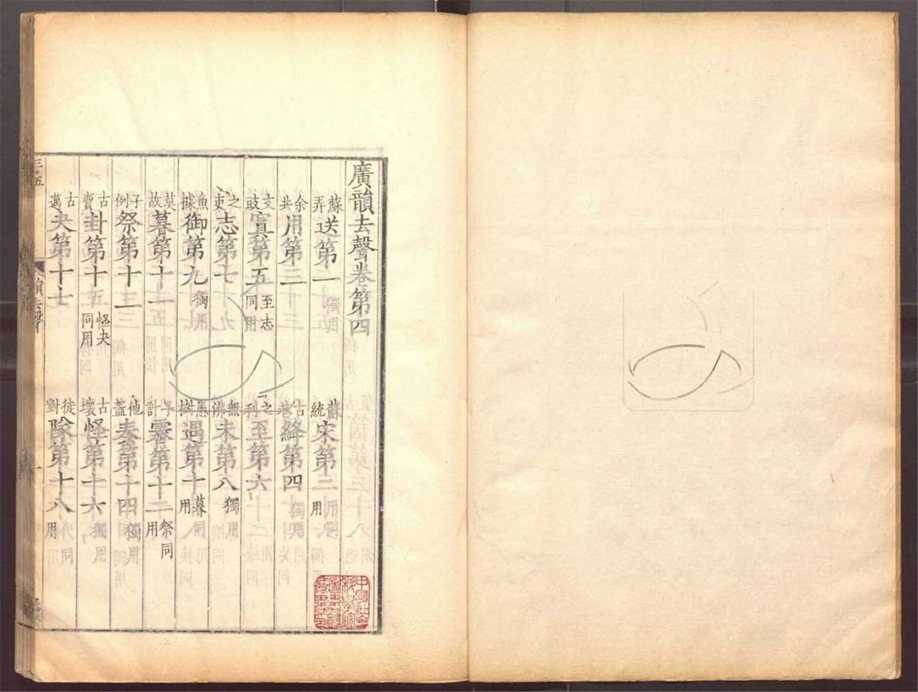 廣韻去聲卷第四
蘇弄送第一獨用 蘇統宋第二用同用
余共用第三 古巷絳第四獨用
支豉寘第五至志同用 之利至第六
之吏志第七 無沸未第八獨用
魚據御第九獨用 愚樹遇第十暮同用
莫故暮第十一 子計霽第十二祭同用
子例祭第十三 他蓋泰第十四獨用
古賣卦第十五怪夬同用 古壞怪第十六
古邁夬第十七 徒對隊第十八代同用